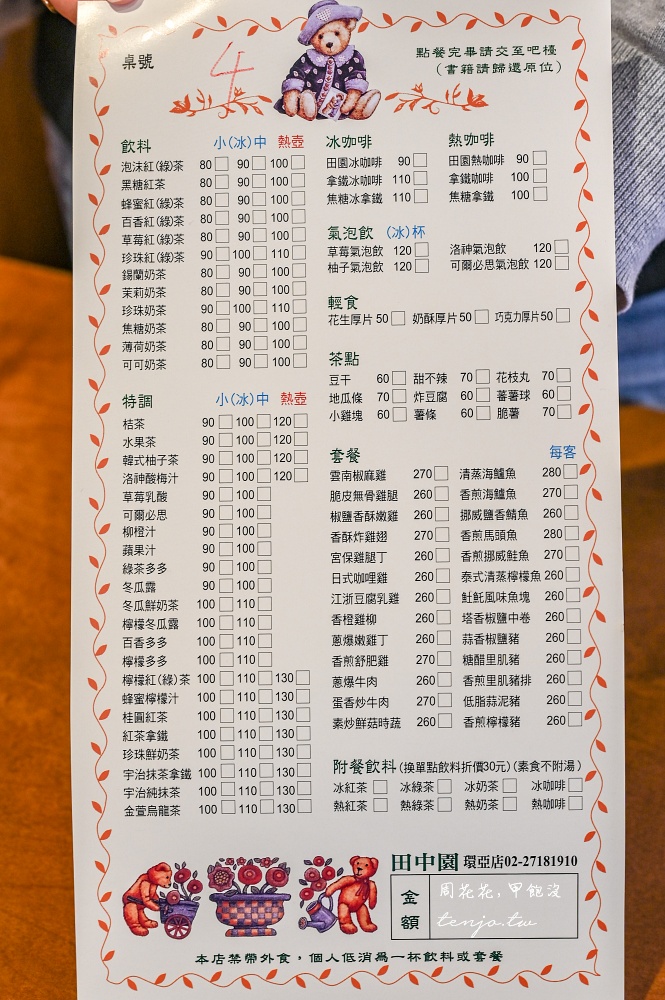 桌號 4
點餐完畢請交至吧檯
(書籍請歸還原位)
飲料 小(冰)中 熱壺
泡沫紅(綠)茶 80 90 100
黑糖紅茶 80 90 100
蜂蜜紅(綠)茶 80 90 100
百香紅(綠)茶 80 90 100
草莓紅(綠)茶 80 90 100
珍珠紅(綠)茶 90 100 110
錫蘭奶茶 80 90 100
茉莉奶茶 80 90 100
珍珠奶茶 90 100 110
焦糖奶茶 80 90 100
薄荷奶茶 80 90 100
可可奶茶 80 90 100
特調 小(冰)中 熱壺
桔茶 90 100 120
水果茶 90 100 120
韓式柚子茶 90 100 120
洛神酸梅汁 90 100 120
草莓乳酸 90 100
可爾必思 90 100
柳橙汁 90 100
蘋果汁 90 100
綠茶多多 90 100
冬瓜露 90 100
冬瓜鮮奶茶 100 110
檸檬冬瓜露 100 110
百香多多 100 110
檸檬多多 100 110
檸檬紅(綠)茶 100 110 130
蜂蜜檸檬汁 100 110 130
桂圓紅茶 100 110 130
紅茶拿鐵 100 110 130
珍珠鮮奶茶 100 110 130
宇治抹茶拿鐵 100 110 130
宇治純抹茶 100 110 130
金萱烏龍茶 100 110 130
冰咖啡 熱咖啡
田園冰咖啡 90 田園熱咖啡 90
拿鐵冰咖啡 110 拿鐵咖啡 100
焦糖冰拿鐵 110 焦糖拿鐵 100
氣泡飲 (冰)杯
草莓氣泡飲 120 洛神氣泡飲 120
柚子氣泡飲 120 可爾必思氣泡飲 120
輕食
花生厚片 50 奶酥厚片 50 巧克力厚片 50
茶點
豆干 60 甜不辣 70 花枝丸 70
地瓜條 70 炸豆腐 60 蕃薯球 60
小雞塊 60 薯條 60 脆薯 70
套餐 每客
雲南椒麻雞 270 清蒸海鱸魚 280
脆皮無骨雞腿 260 香煎海鱸魚 270
椒鹽香酥嫩雞 260 挪威鹽香鯖魚 260
香酥炸雞翅 270 香煎馬頭魚 280
宮保雞腿丁 260 香煎挪威鮭魚 270
日式咖哩雞 260 泰式清蒸檸檬魚 260
江浙豆腐乳雞 260 魠魠風味魚塊 260
香橙雞柳 260 塔香椒鹽中卷 260
蔥爆嫩雞丁 260 蒜香椒鹽豬 260
香煎舒肥雞 270 糖醋里肌豬 260
蔥爆牛肉 260 香煎里肌豬排 260
蛋香炒牛肉 270 低脂蒜泥豬 260
素炒鮮菇時蔬 260 香煎檸檬豬 260
附餐飲料(換單點飲料折價30元)(素食不附湯)
冰紅茶 冰綠茶 冰奶茶 冰咖啡
熱紅茶 熱綠茶 熱奶茶 熱咖啡
田中園 環亞店02-27181910
金額
周花花,甲飽沒
tenjo.tw
本店禁帶外食,個人低消為一杯飲料或套餐